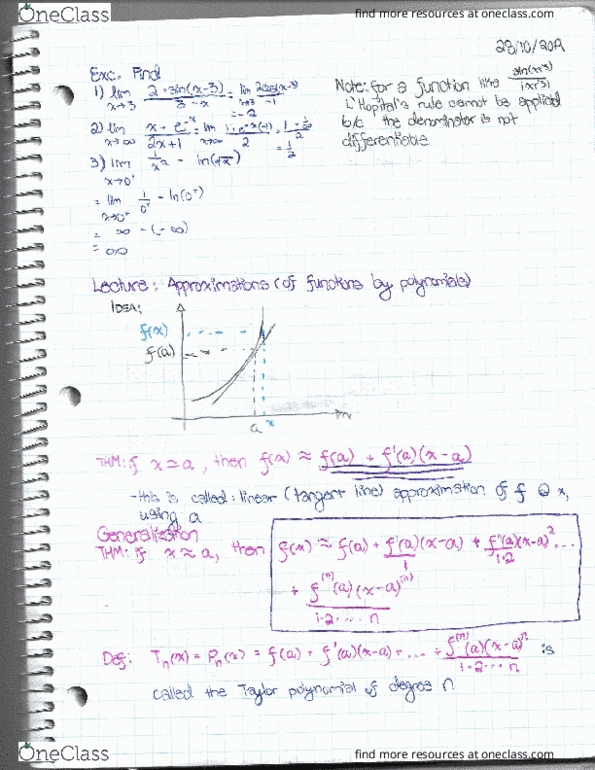 OneClass
find more resources at oneclass.com
28/10/2019
Exc. Find
1) lim x→3 2·sin(x-3) / 3-x = lim x→3 2cos(x-3) / -1
= -2
2) lim x→∞ x + e^-x / 2x+1 = lim x→∞ 1+e^-x(-1) / 2
= 1/2
3) lim x→0⁺ 1/x² - ln(√x)
= lim x→0⁺ 1/0⁺ - ln(0⁺)
= ∞ - (-∞)
= ∞
Note: for a function like
L'Hopital's rule cannot be applied
b/c the denominator is not
differentiable
Lecture: Approximations (of functions by polynomials)
IDEA:
f(x)
f(a)
a x
THM: if x≃a, then f(x) ≈ f(a) + f'(a)(x-a)
- this is called: linear (tangent line) approximation of f @ x,
using a
Generalization
THM: if x≈a, then f(x) ≈ f(a) + f'(a)(x-a) / 1 + f''(a)(x-a)² / 1·2 ...
+ f^(n)(a)(x-a)^(n) / 1·2·...·n
Def: Tn(x) = Pn(x) = f(a) + f'(a)(x-a) + ... + f^(n)(a)(x-a)^n / 1·2···n is
called the Taylor polynomial of degree n
OneClass
find more resources at oneclass.com